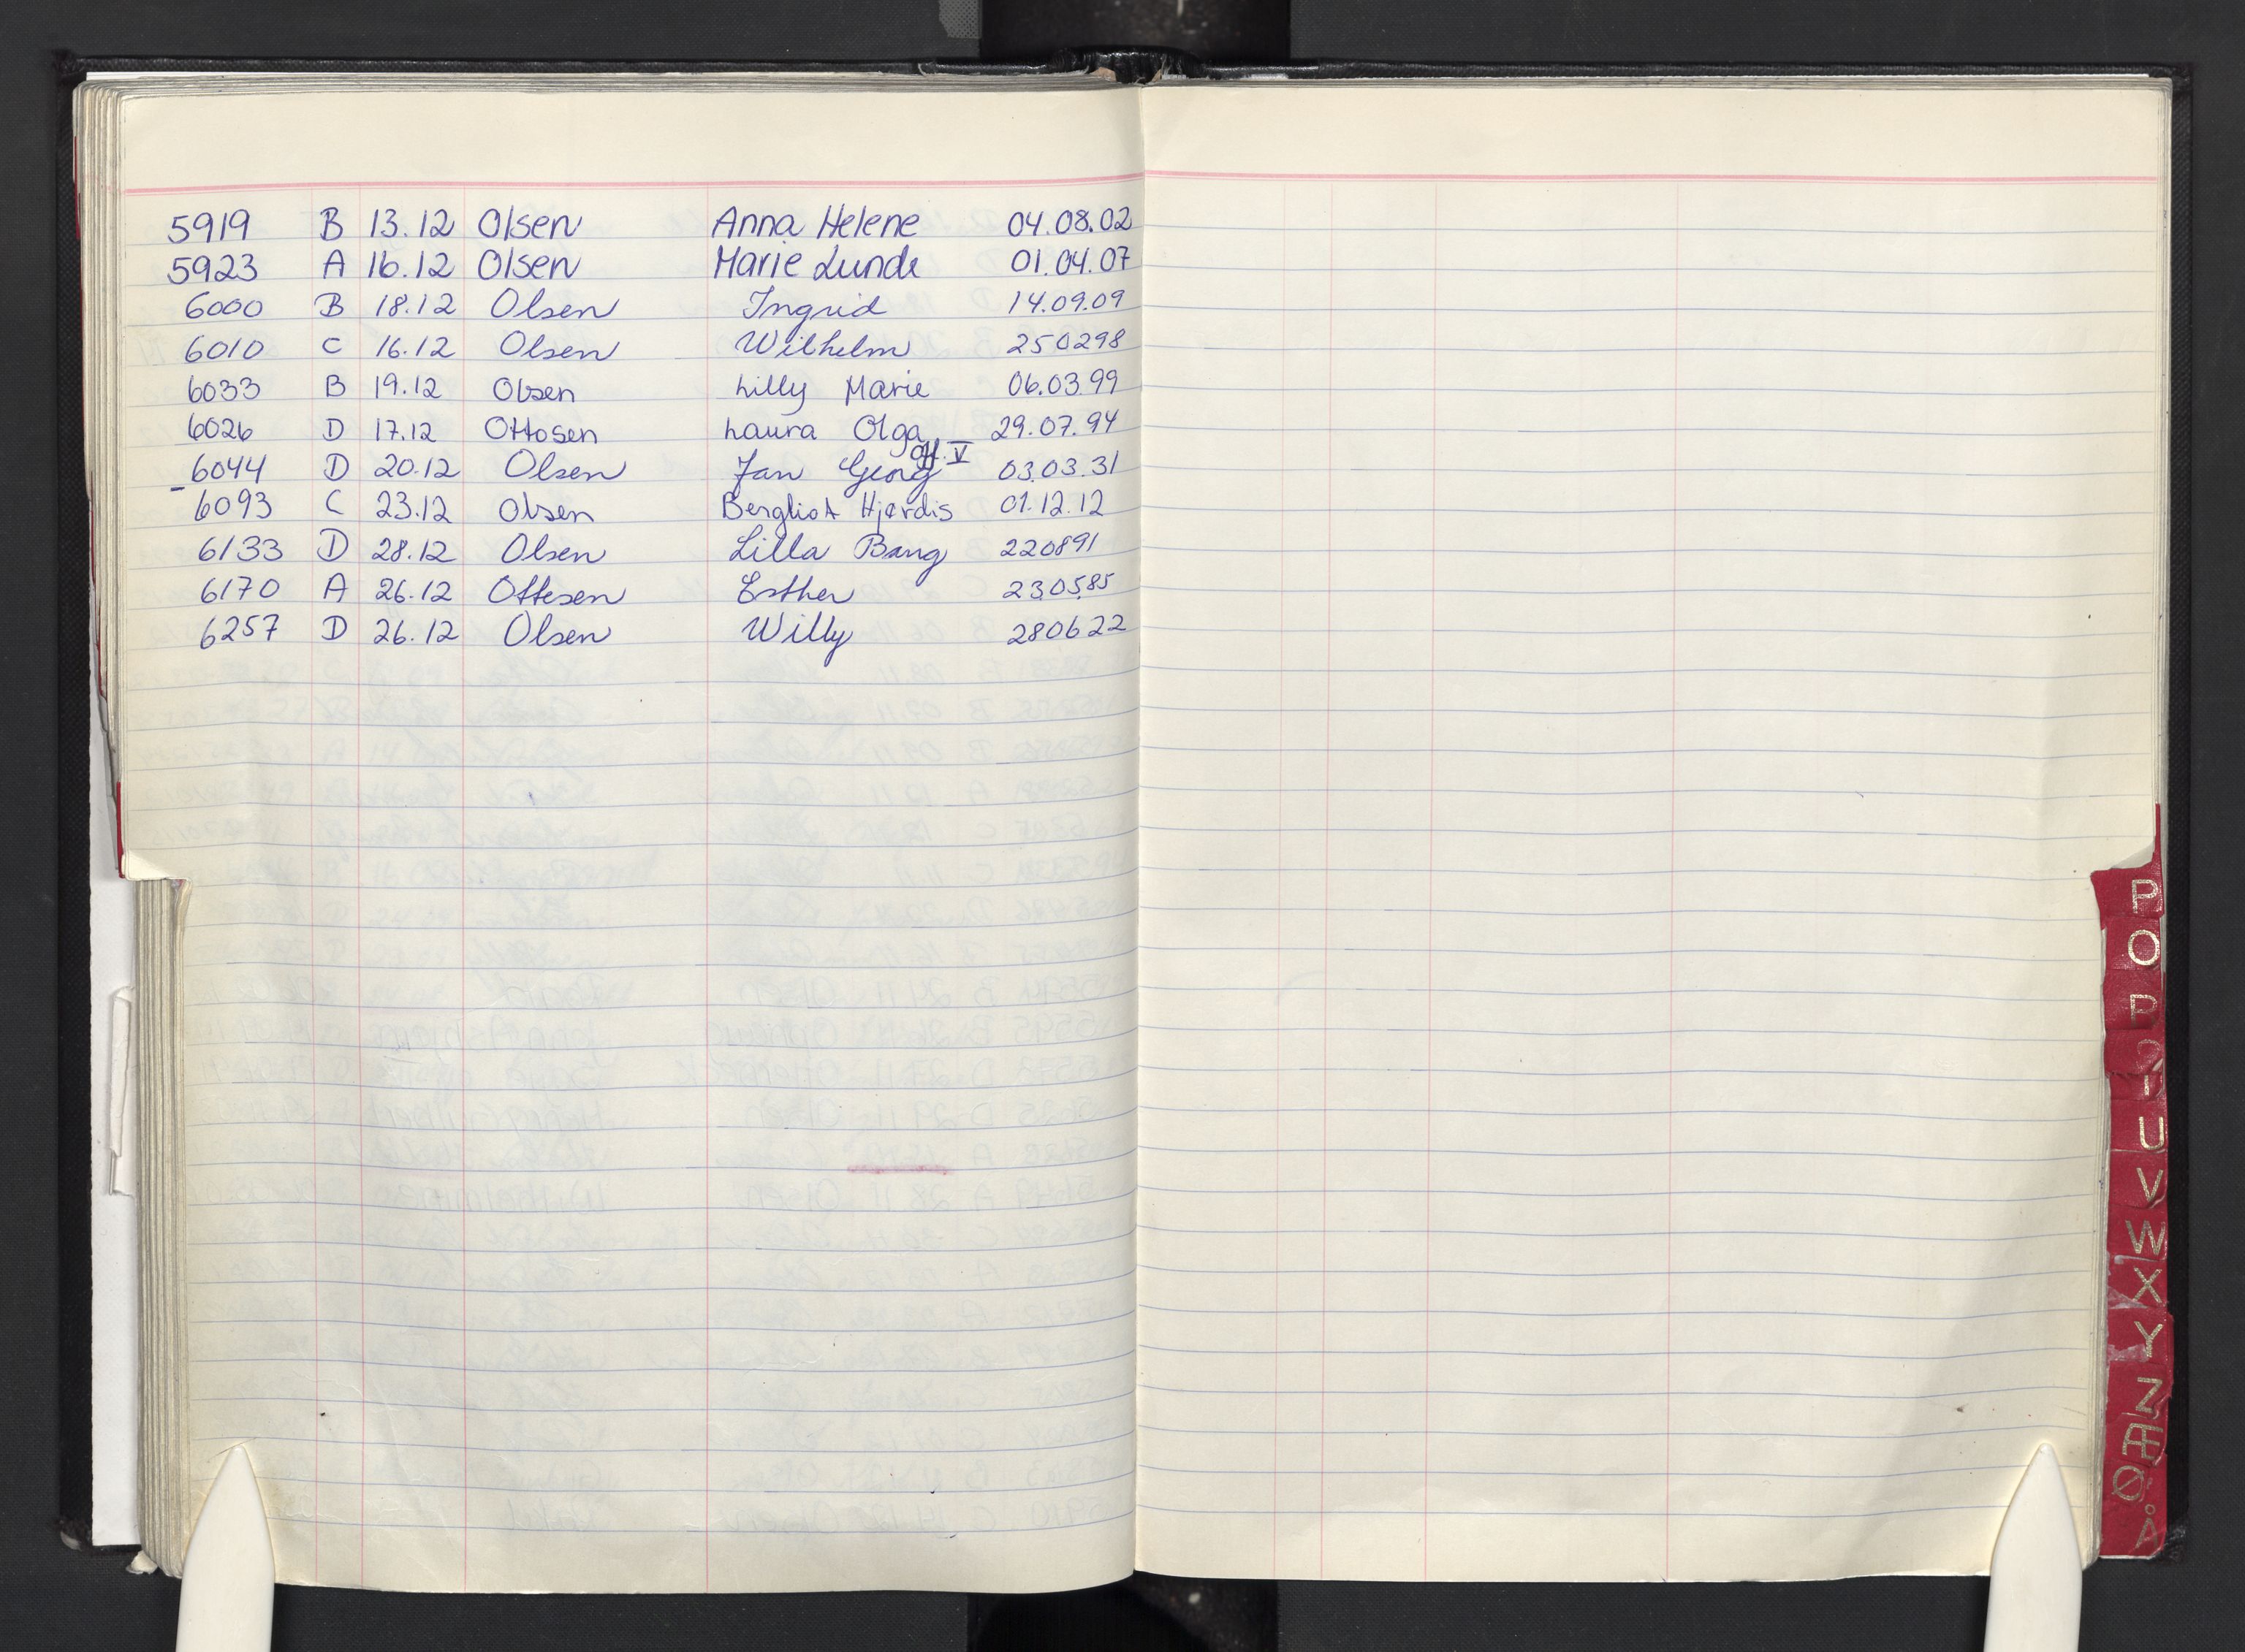 5919 B 13.12 Olsen Anna Helene 04.08.02
5923 A 16.12 Olsen Marie Lunde 01.04.07
6000 B 18.12 Olsen Ingrid 14.09.09
6010 C 16.12 Olsen Wilhelm 250298
6033 B 19.12 Olsen Lilly Marie 06.03.99
6026 D 17.12 Ottosen Laura Olga 29.07.94
off. V
6044 D 20.12 Olsen Jan Georg 03.03.31
6093 C 23.12 Olsen Bergliot Hjørdis 01.12.12
6133 D 28.12 Olsen Lilla Bang 220891
6170 A 26.12 Ottesen Esther 230585
6257 D 26.12 Olsen Willy 280622
P
Q
R
U
V
W
X
Y
Z
Æ
Ø
Å